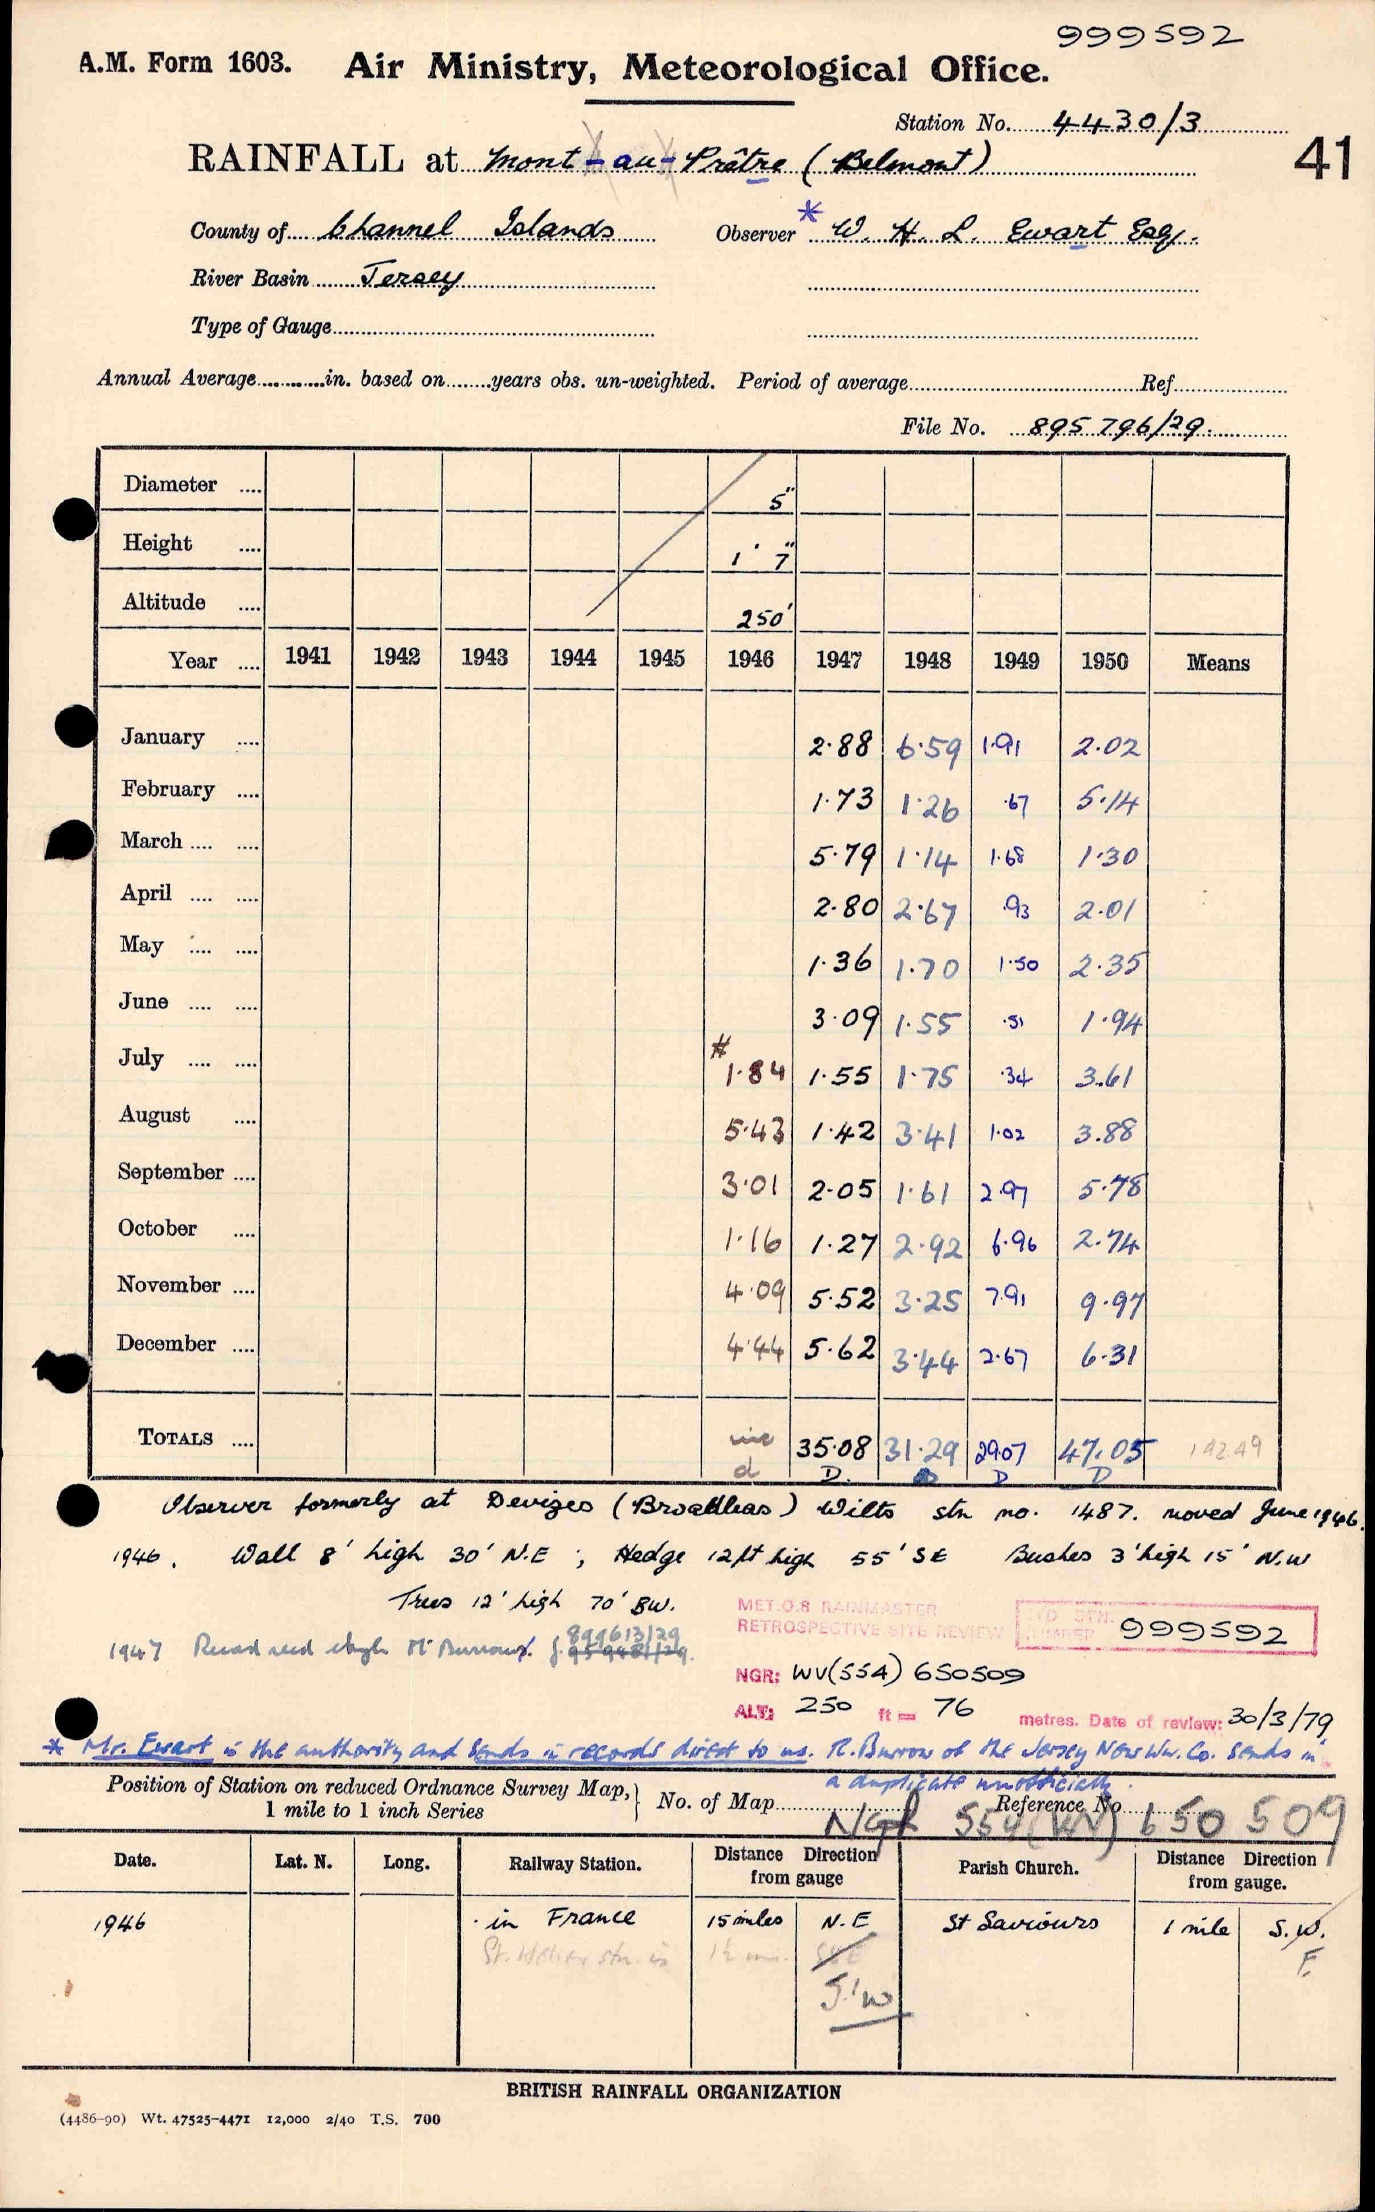 999592
A.M. Form 1603. Air Ministry, Meteorological Office.
Station No. 4430/3
RAINFALL at Mont-au-Prêtre (Belmont)
41
County of Channel Islands Observer * W. H. L. Ewart Esq.
River Basin Jersey
Type of Gauge
Annual Average in. based on years obs. un-weighted. Period of average Ref
File No. 895796/29.
Diameter 5"
Height 1' 7"
Altitude 250'
Year 1941 1942 1943 1944 1945 1946 1947 1948 1949 1950 Means
January 2.88 6.59 1.91 2.02
February 1.73 1.26 .67 5.14
March 5.79 1.14 1.68 1.30
April 2.80 2.67 .93 2.01
May 1.36 1.70 1.50 2.35
June 3.09 1.55 .51 1.94
July # 1.84 1.55 1.75 .34 3.61
August 5.43 1.42 3.41 1.02 3.88
September 3.01 2.05 1.61 2.97 5.78
October 1.16 1.27 2.92 6.96 2.74
November 4.09 5.52 3.25 7.91 9.97
December 4.44 5.62 3.44 2.67 6.31
TOTALS inc 35.08 31.29 29.07 47.05 142.49
d D. D D D
Observer formerly at Devizes (Broadleas) Wilts stn no. 1487. moved June 1946.
1946. Wall 8' high 30' N.E ; Hedge 12ft high 55' SE Bushes 3' high 15' N.W
Trees 12' high 70' SW.
899613/29
1947 Record recd Mr Burrow 959481/29.
MET.O.8 RAINMASTER
RETROSPECTIVE SITE REVIEW
STN. NUMBER 999592
NGR: WV(554) 650509
ALT: 250 ft = 76 metres. Date of review: 30/3/79
* Mr. Ewart is the authority and sends in records direct to us. R. Burrow of the Jersey New Ww. Co. sends in
a duplicate unofficially.
Position of Station on reduced Ordnance Survey Map, 1 mile to 1 inch Series } No. of Map Reference No
NGR 554(WV) 650 509
Date. Lat. N. Long. Railway Station. Distance Direction from gauge Parish Church. Distance Direction from gauge.
1946 in France 15 miles N.E St Saviours 1 mile S.W.
St. Helier stn. is 1½ mi. SSE F.
S'W
BRITISH RAINFALL ORGANIZATION
(4486-90) Wt. 47525-4471 12,000 2/40 T.S. 700